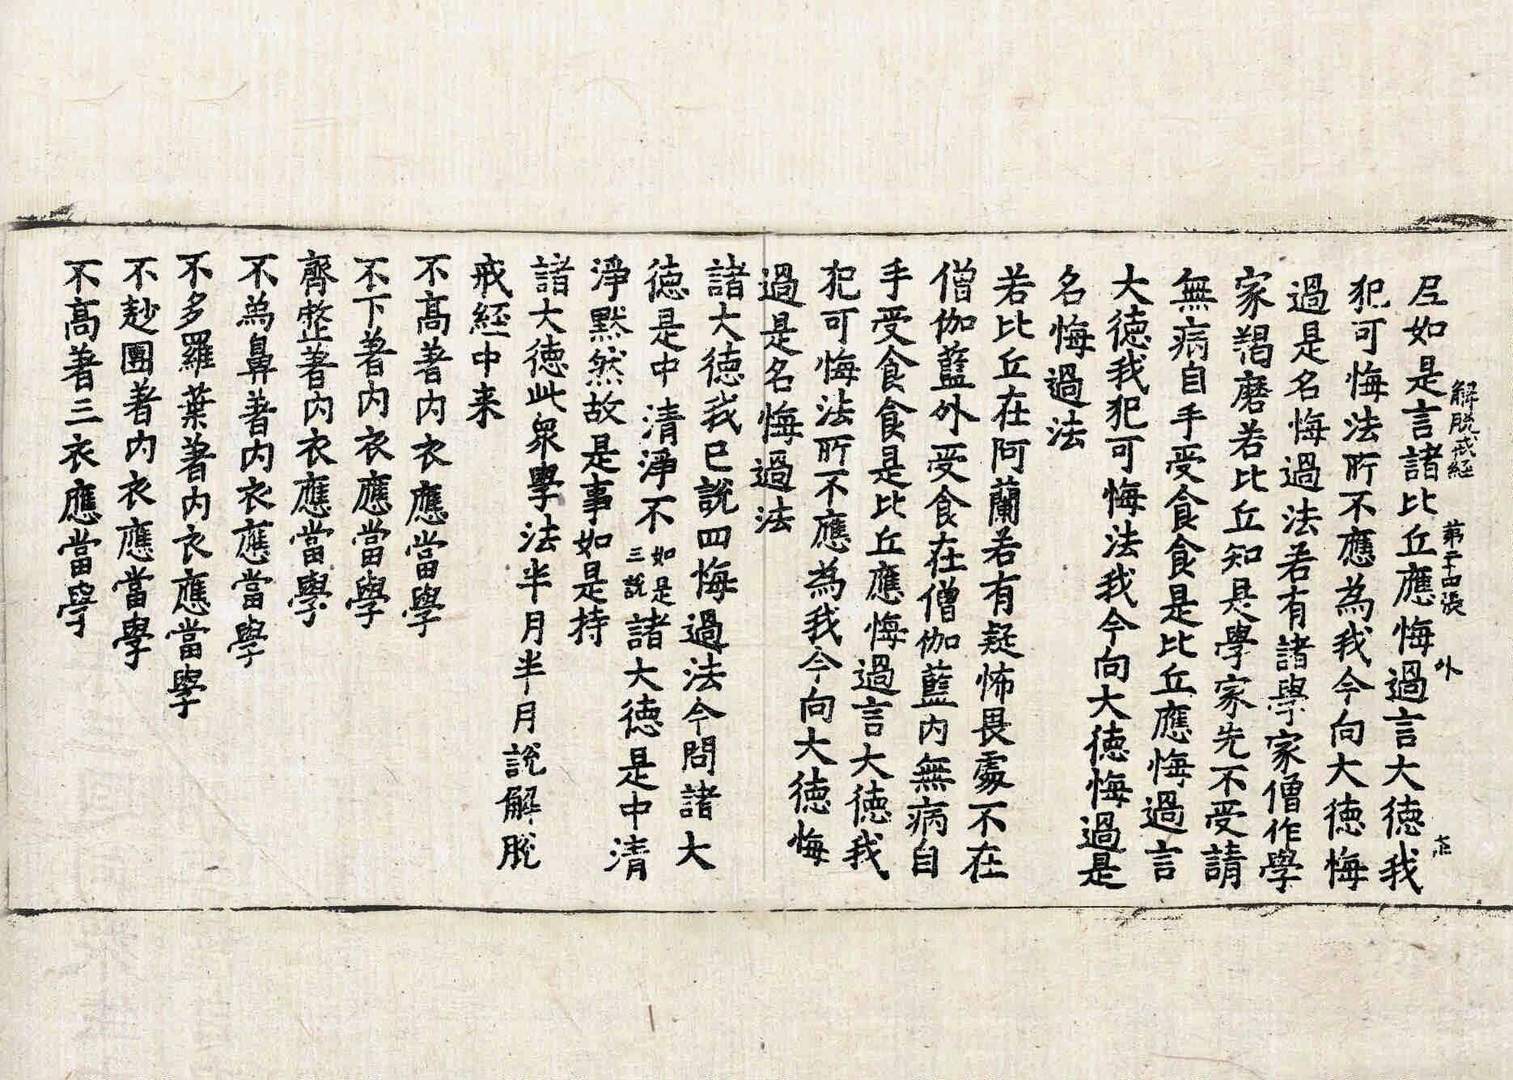 解脫戒經 第二十四張 外
尼如是言諸比丘應悔過言大德我
犯可悔法所不應為我今向大德悔
過是名悔過法若有諸學家僧作學
家羯磨若比丘知是學家先不受請
無病自手受食食是比丘應悔過言
大德我犯可悔法我今向大德悔過是
名悔過法
若比丘在阿蘭若有疑怖畏處不在
僧伽藍外受食在僧伽藍內無病自
手受食食是比丘應悔過言大德我
犯可悔法所不應為我今向大德悔
過是名悔過法
諸大德我已說四悔過法今問諸大
德是中清淨不如是三說諸大德是中清
淨默然故是事如是持
諸大德此眾學法半月半月說解脫
戒經中来
不高著內衣應當學
不下著內衣應當學
齊整著內衣應當學
不為鼻著內衣應當學
不多羅葉著內衣應當學
不麨團著內衣應當學
不高著三衣應當學